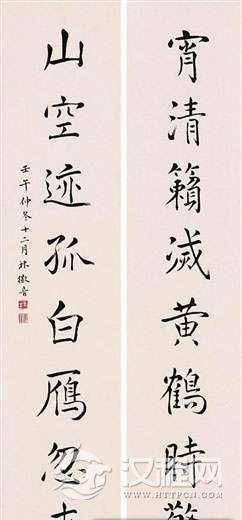 宵清籟滅黄鶴睦
山空迹孤白鴈忽
壬午仲冬十二月林徽音
汉程网
WWW.HTTPCN.COM